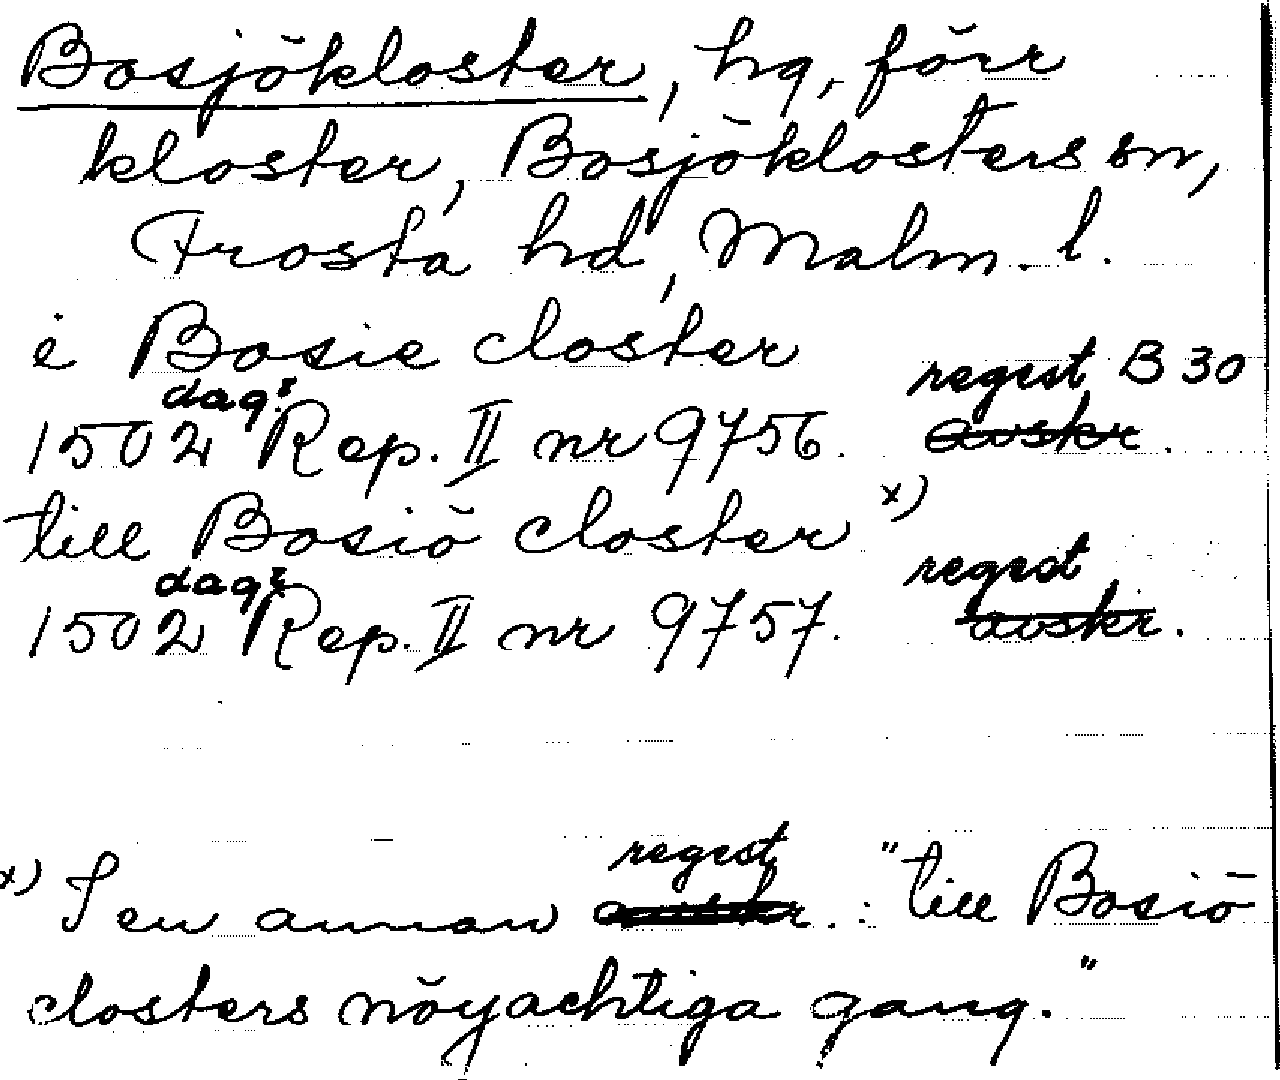 Bosjökloster, hg, förr
kloster, Bosjöklosters sn,
Frosta hd, Malm. l.
i Bosie closter
regest B 30
dagr
1502 Rep. II nr 9756. avskr.
till Bosiö closter x)
regest
dagr
1502 Rep. II nr 9757. avskr.
regest
x) I en annan avskr.: "till Bosiö
closters nöyachtiga gang."